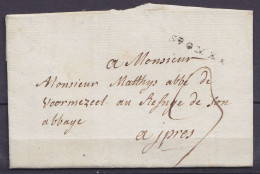 a Monsieur
Monsieur Matthys abbé de
Voormezeel au Refuge de Son
abbaye
a ypres